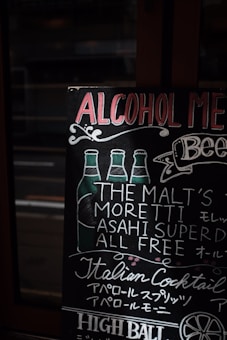 ALCOHOL ME
Bee
THE MALT'S
MORETTI モレッ
ASAHI SUPERD
ALL FREE オール
Italian Cocktail
アペロール スプリッツ ア
アペロール モーニ
HIGH BALL